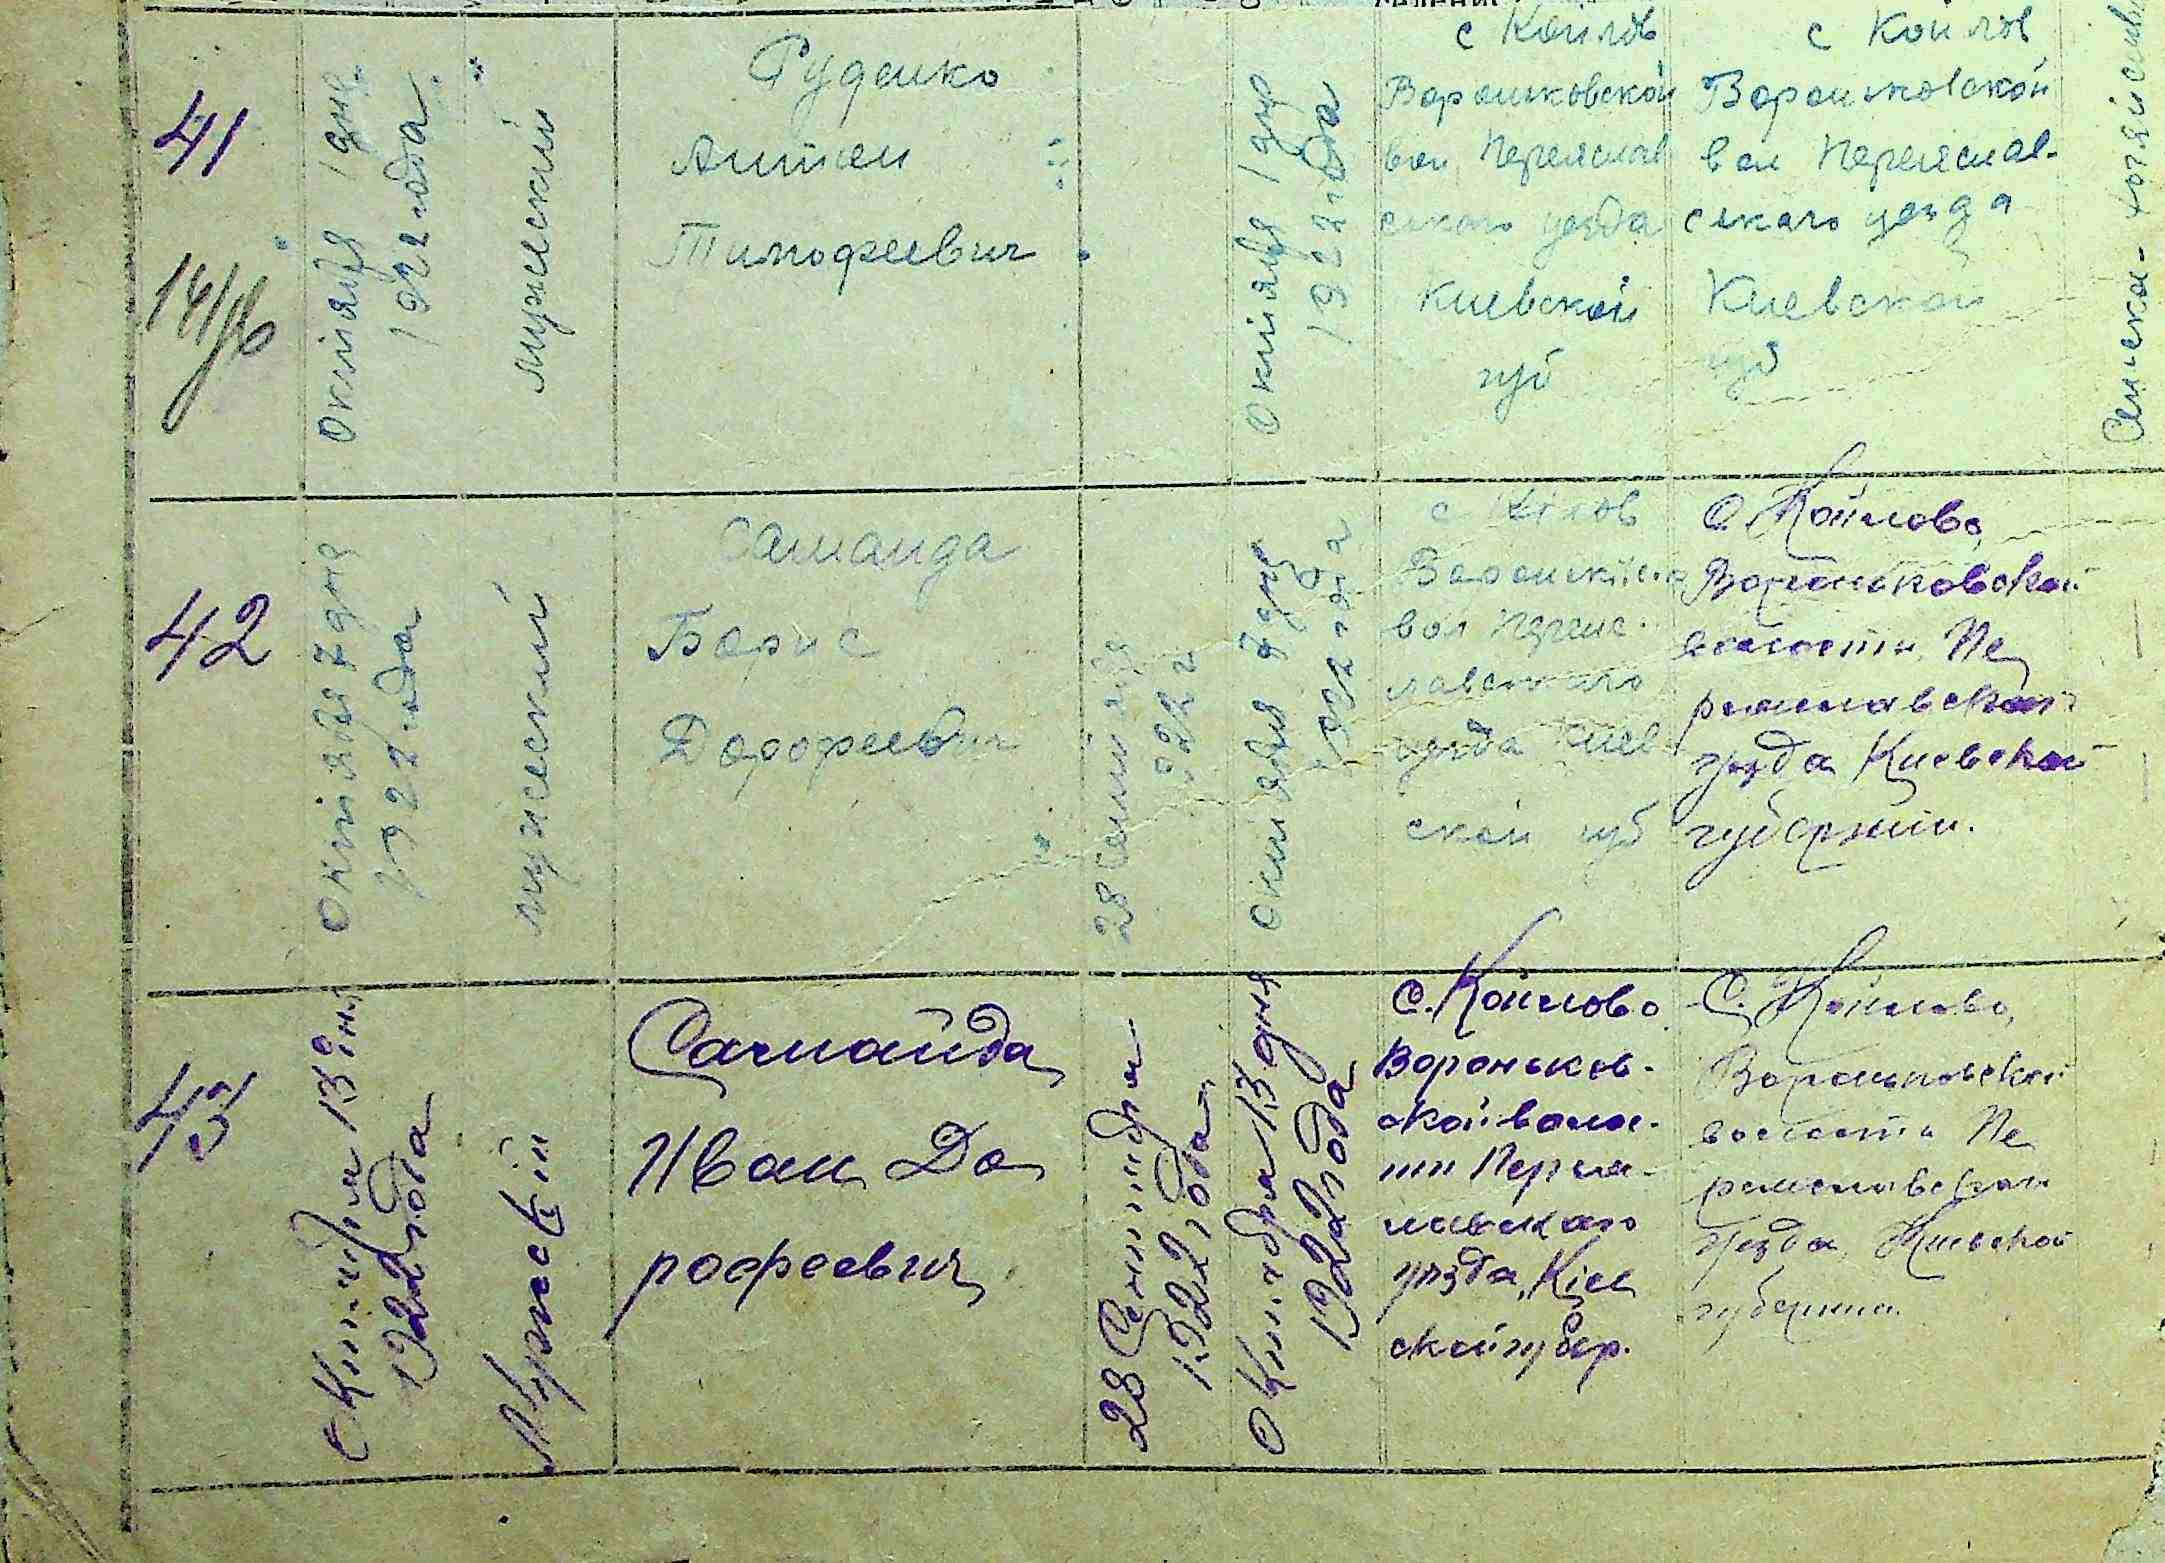 41
141/6
Октября 1 дня
1922 года
мужеский
Руденко
Антон
Тимофеевич
Октября 1 дня
1922 года
с Койлов
Вороньковской
вол Переяслав
ского уезда
Киевской
губ
с Койлов
Вороньковской
вол Переяслав-
ского уезда
Киевской
губ
42
Октября 7 дня
1922 года
мужеский
Саманда
Борис
Дорофеевич
28 Сентября
1922 г
Октября 7 дня
1922 года
с Кілов
вол Переяс-
лавского
уезда Киев
ской губ
С. Койлово,
Вороньковской
волости Пе
реяславской
уезда Киевской
губернии.
43
Октября 13 дня
1922 года
Мужский
Самайда
Иван До
рофеевич
28 Сентября
1922 года
Октября 13 дня
1922 года
С. Койлово
Вороньков-
ской волос-
ти Переяс-
лавского
уезда, Кіев
ской губер.
С. Койлово,
Вороньковской
волости Пе
реяславской
уезда, Киевской
губернии.